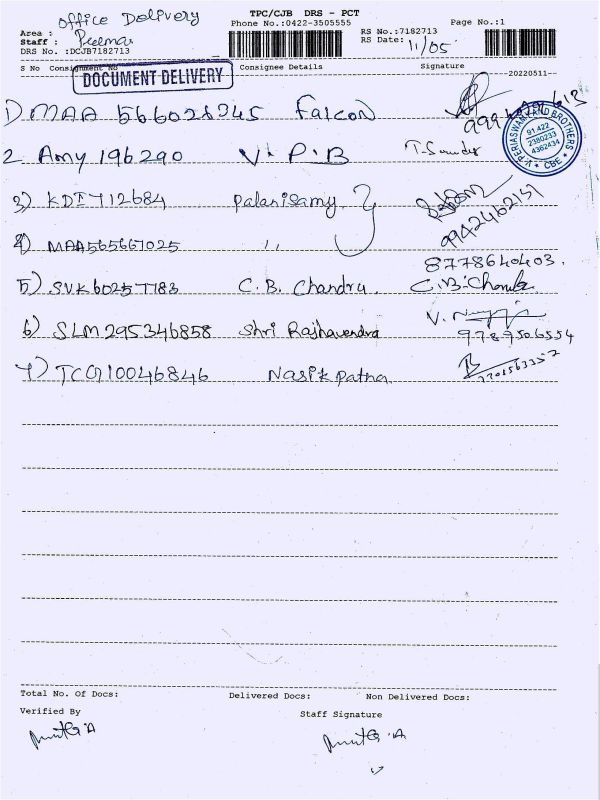 office Delivery
TPC/CJB DRS - PCT
Phone No.:0422-3505555
Page No.:1
Area :
Staff : Peelmar
DRS No. :DCJB7182713
RS No.:7182713
RS Date: 11/05
S No Consignment No Consignee Details Signature
20220511--
DOCUMENT DELIVERY
1) MAA 566028345 Falcon
V.PERIASWAMY AND BROTHERS
91 422
2380233
4362434
* CBE *
2. Amy 196290 V.P.B T-Sundar
3) KDI712684 Palanisamy
9942462151
4) MAA565667025 ''
8778640403.
5) SVK60257783 C.B. Chandru. C.B.Chandu
6) SLM295346858 Shri Rajhavendra
9789506554
7) TCG10046846 Nasik patna
Total No. Of Docs: Delivered Docs: Non Delivered Docs:
Verified By Staff Signature